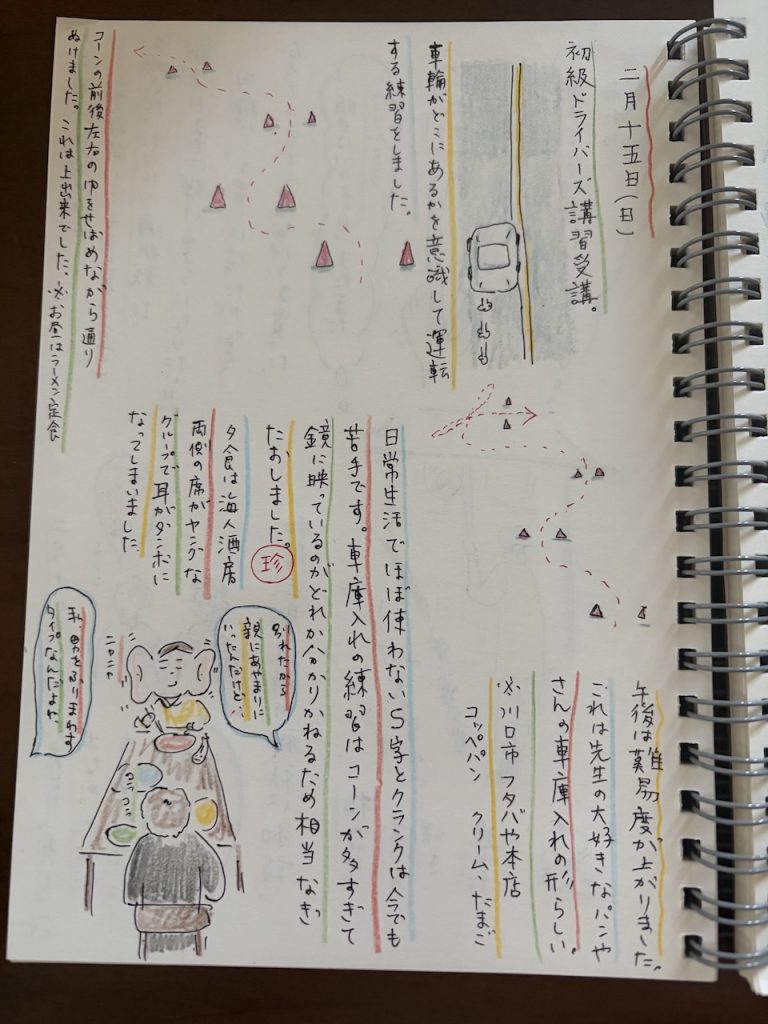 二月十五日(日)
初級ドライバーズ講習受講。
車輪がどこにあるかを意識して運転
する練習をしました。
コーンの前後左右の巾をせばめながら通り
ぬけました。これは上出来でした。※お昼はラーメン定食
午後は難易度が上がりました。
これは先生の大好きなパンや
さんの車庫入れの形らしい。
※川口市フタバや本店
コッペパン クリーム、たまご
日常生活でほぼ使わないS字とクランクは今でも
苦手です。車庫入れの練習はコーンが多すぎて
鏡に映っているのがどれか分かりかねるため相当なぎ
たおしました。珍
夕食は海人酒房
両側の席がヤングな
グループで耳がダンボに
なってしまいました
別れたから
親にあやまりに
いったんだけど、
ニヤニヤ
私、男をふりまわす
タイプなんだよね、
コソコソ